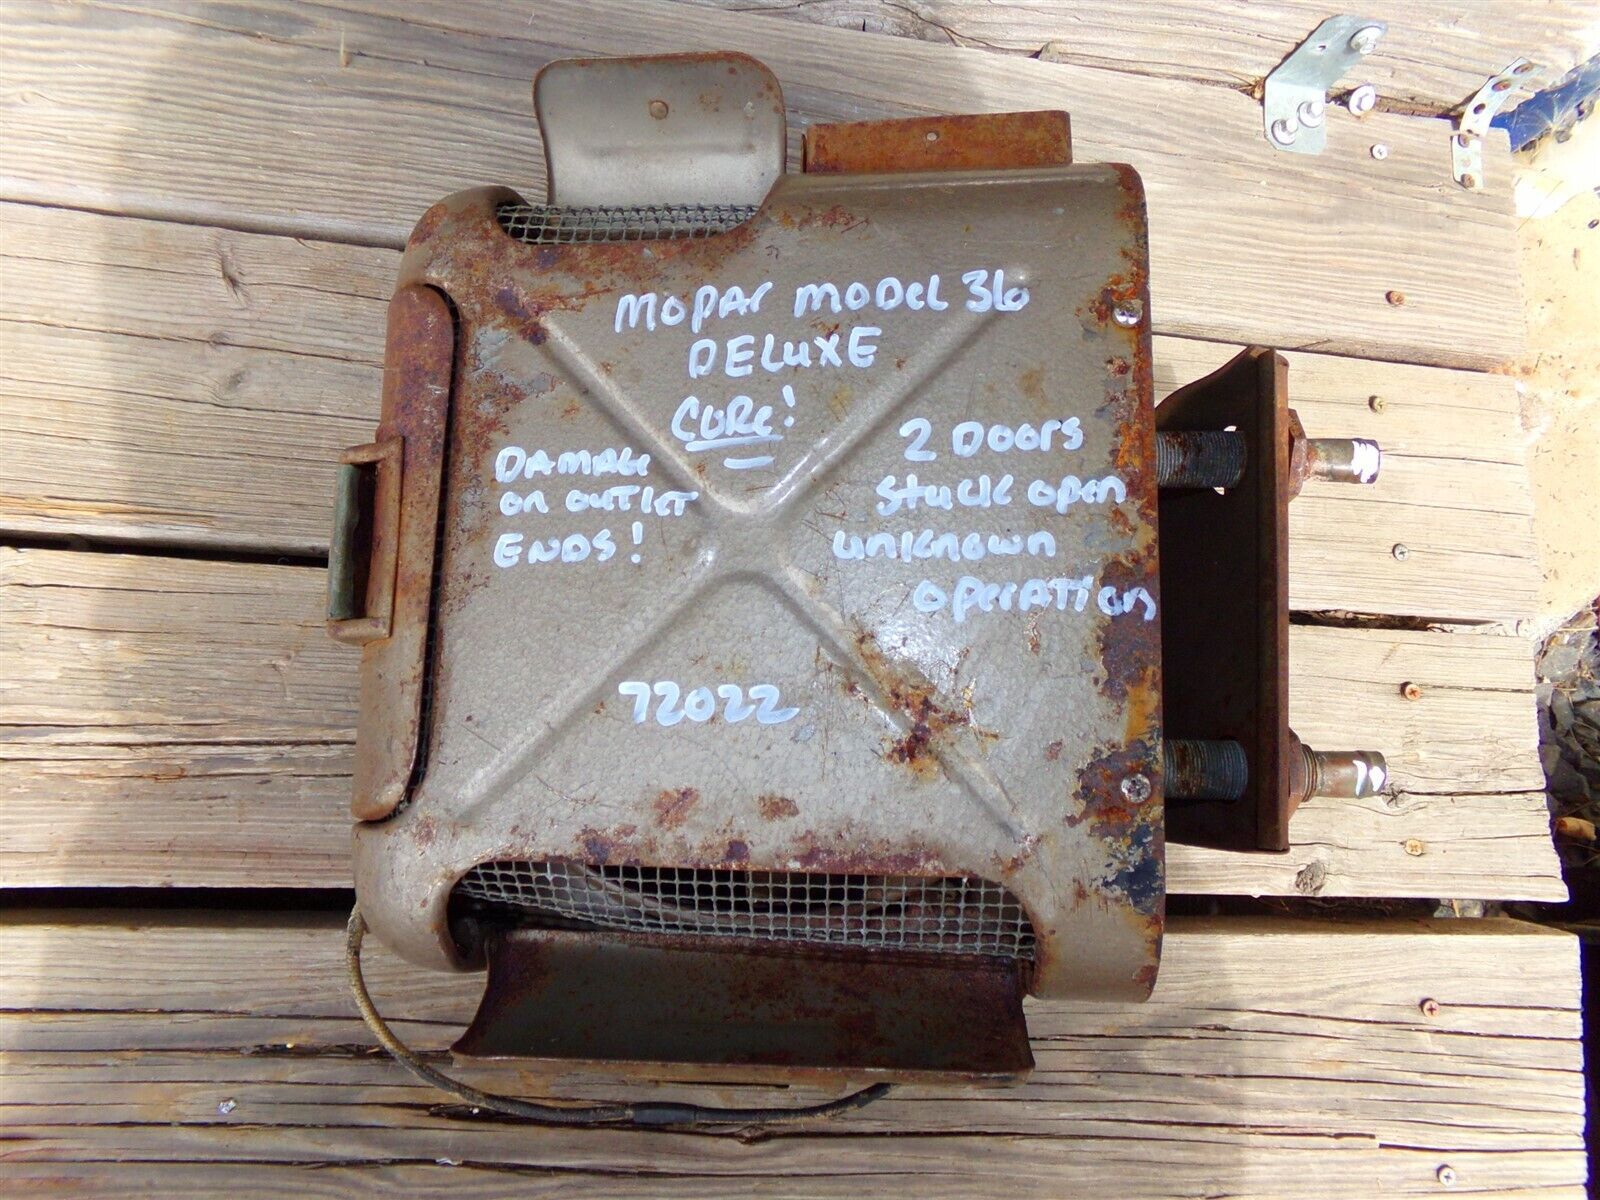 MOPAR MODEL 36
DELUXE
CORE!
DAMAGE
ON OUTLET
ENDS!
2 DOORS
STUCK OPEN
UNKNOWN
OPERATION
72022